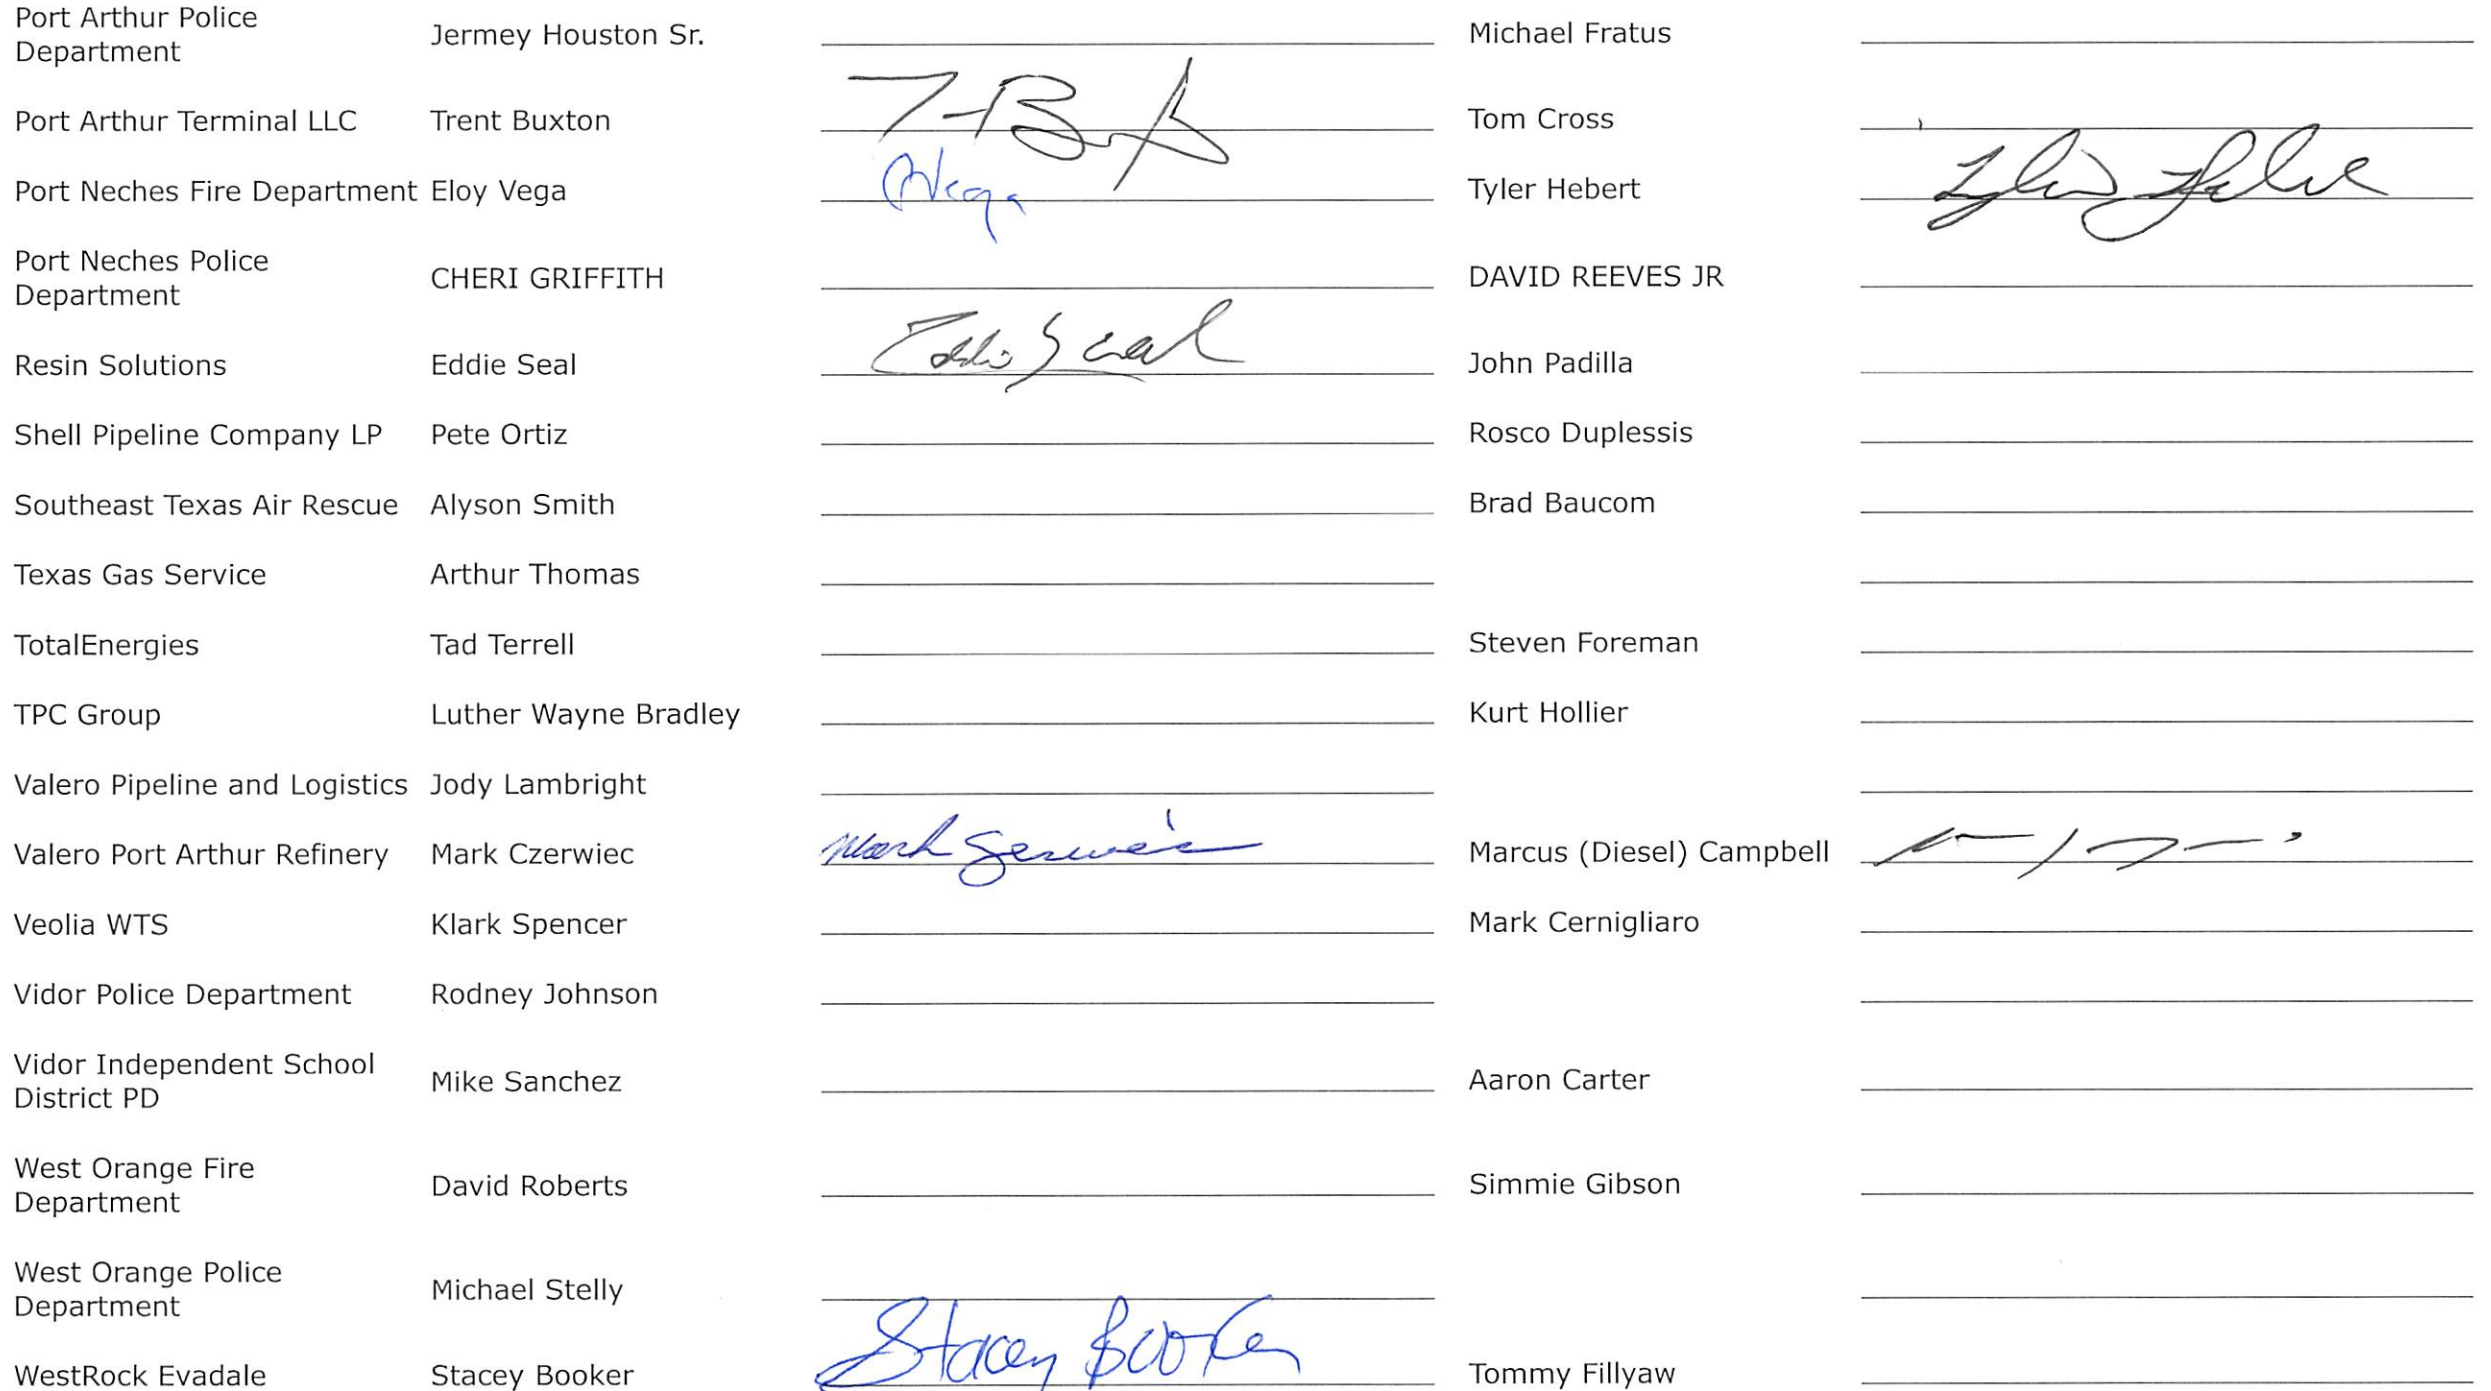 Port Arthur Police
Department
Jermey Houston Sr.
Michael Fratus
Port Arthur Terminal LLC
Trent Buxton
T-Bux
Tom Cross
Port Neches Fire Department
Eloy Vega
Vega
Tyler Hebert
Tyler Hebert
Port Neches Police
Department
CHERI GRIFFITH
DAVID REEVES JR
Resin Solutions
Eddie Seal
Eddie Seal
John Padilla
Shell Pipeline Company LP
Pete Ortiz
Rosco Duplessis
Southeast Texas Air Rescue
Alyson Smith
Brad Baucom
Texas Gas Service
Arthur Thomas
TotalEnergies
Tad Terrell
Steven Foreman
TPC Group
Luther Wayne Bradley
Kurt Hollier
Valero Pipeline and Logistics
Jody Lambright
Valero Port Arthur Refinery
Mark Czerwiec
Mark Czerwiec
Marcus (Diesel) Campbell
Veolia WTS
Klark Spencer
Mark Cernigliaro
Vidor Police Department
Rodney Johnson
Vidor Independent School
District PD
Mike Sanchez
Aaron Carter
West Orange Fire
Department
David Roberts
Simmie Gibson
West Orange Police
Department
Michael Stelly
WestRock Evadale
Stacey Booker
Stacey Booker
Tommy Fillyaw